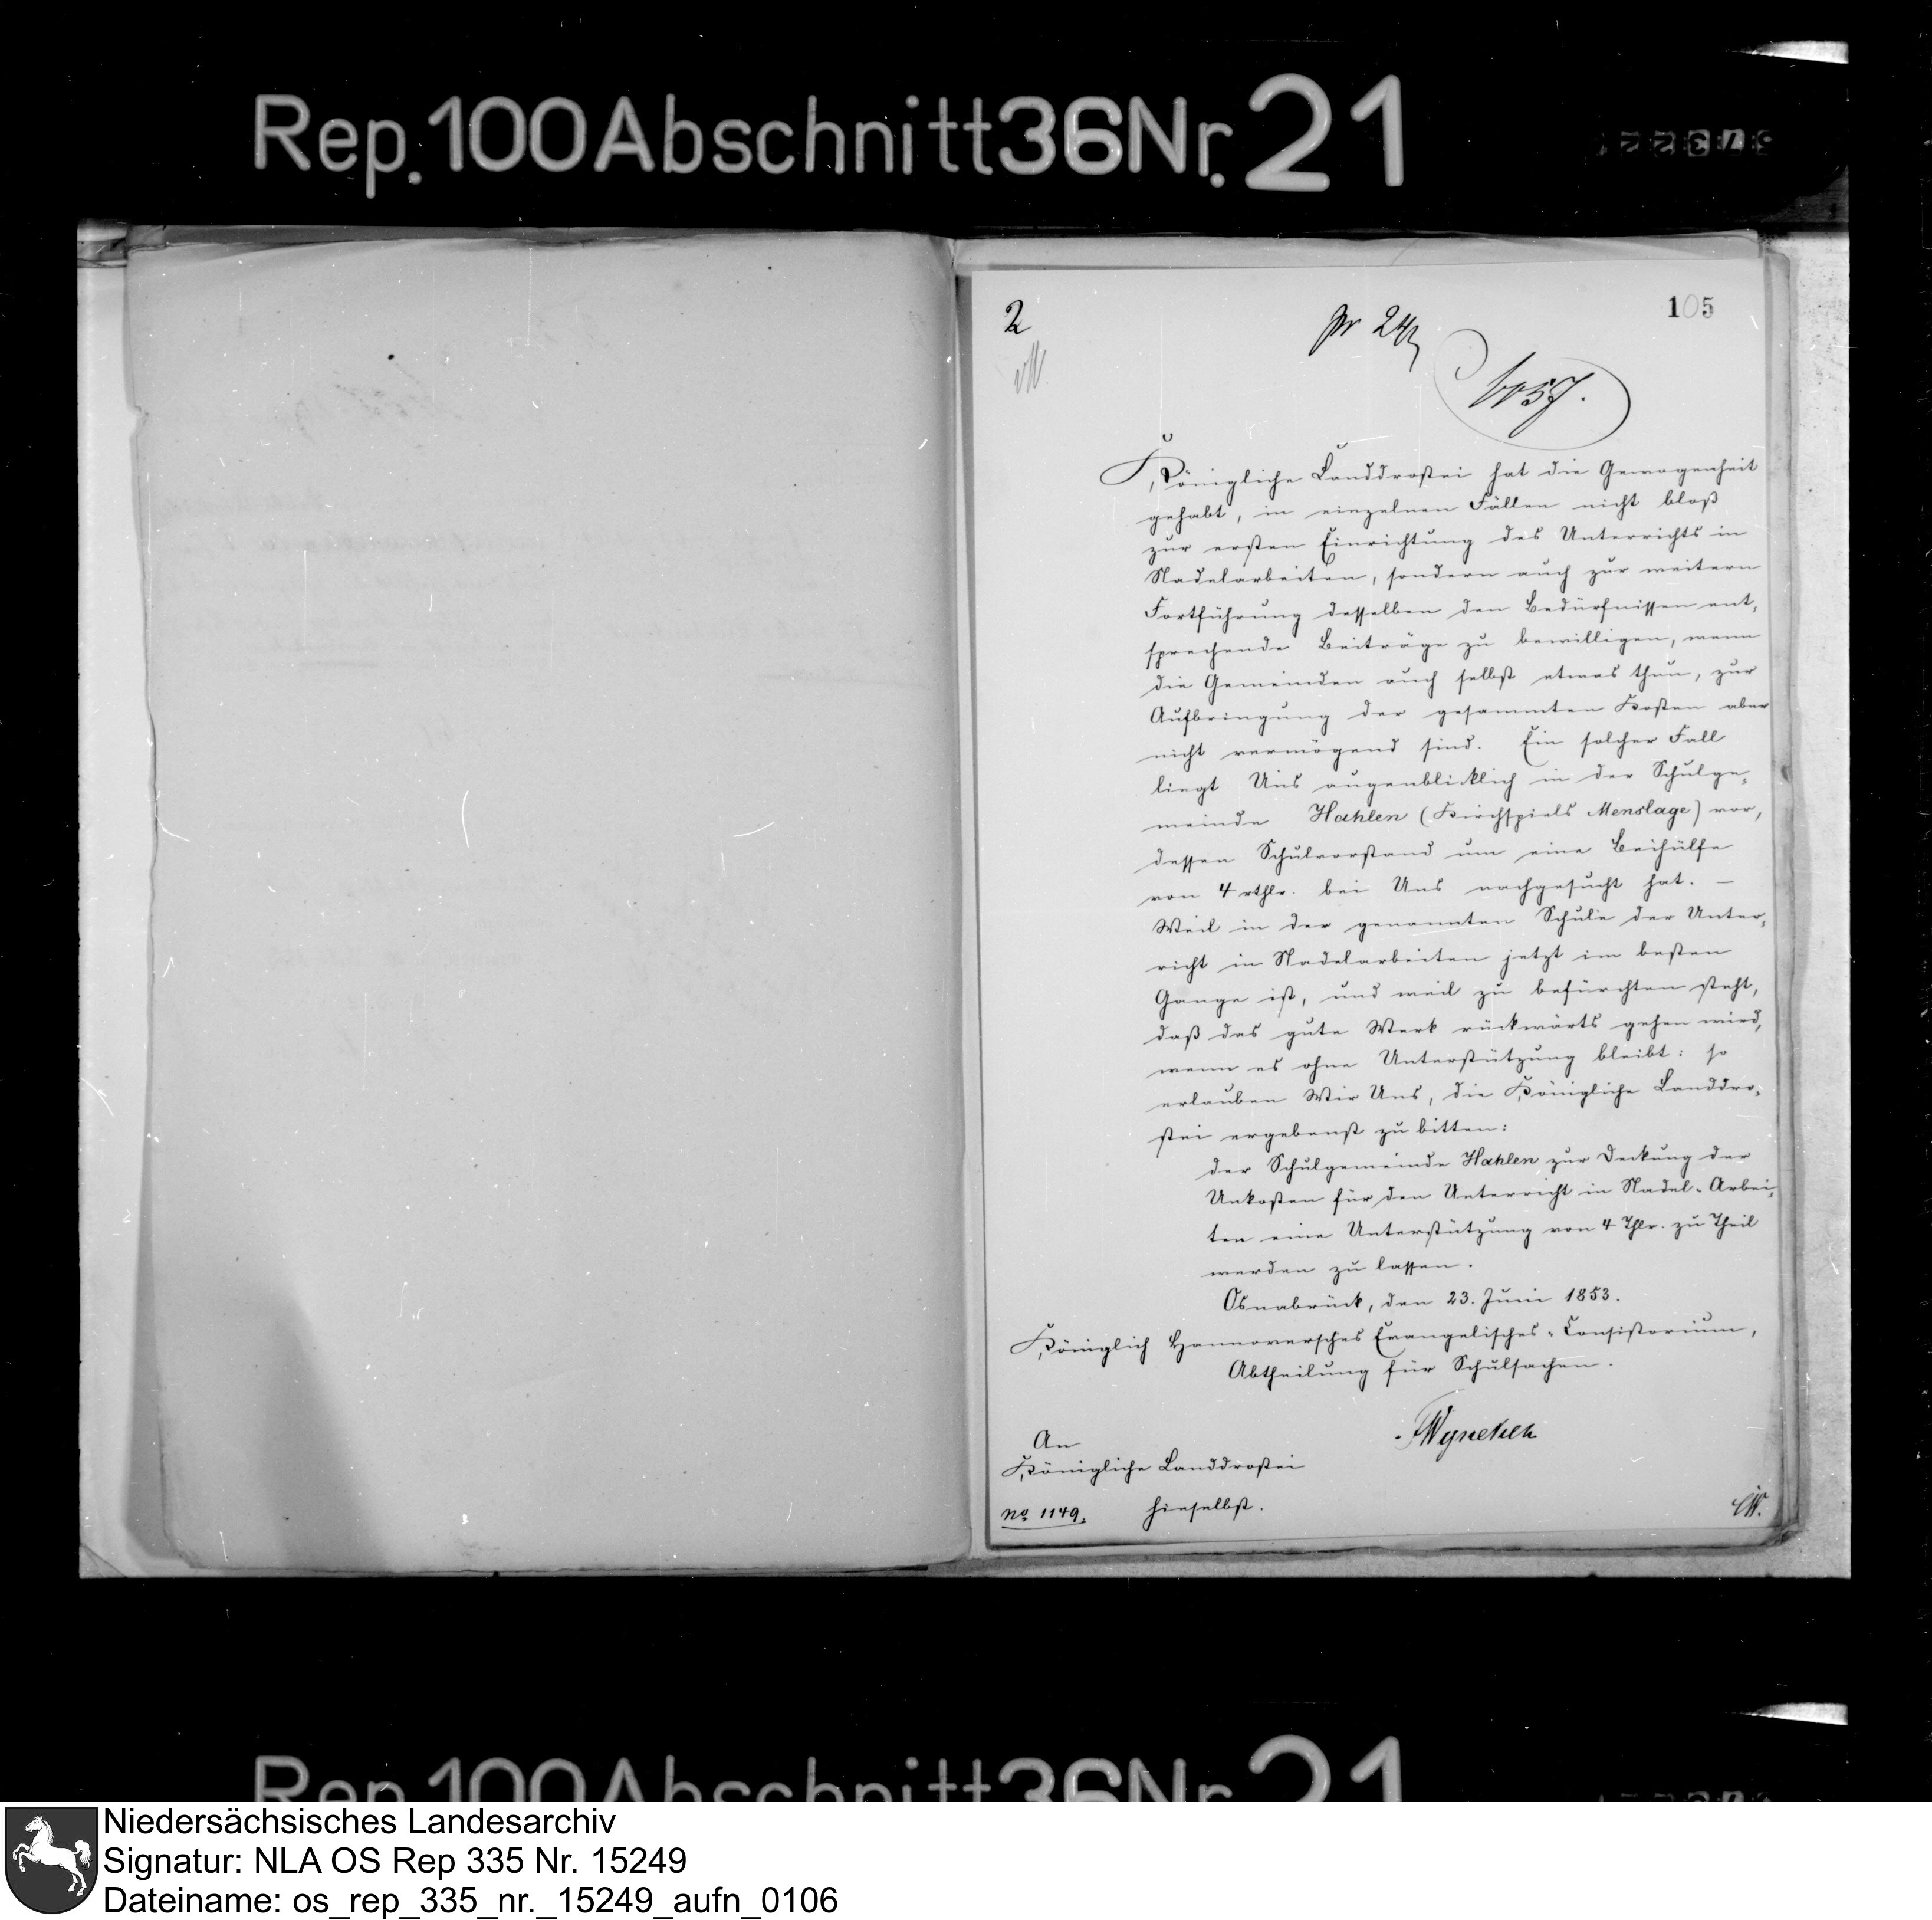 Rep. 100 Abschnitt 36 Nr. 21
2
pr 24/
105
Königliche Landdrostei hat die Gewogenheit
gehabt, in einzelnen Fällen nicht bloß
zur ersten Einrichtung des Unterrichts in
Nadelarbeiten, sondern auch zur weitern
Fortführung desselben den Bedürfnissen ent-
sprechende Beiträge zu bewilligen, wenn
die Gemeinden auch selbst etwas thun, zur
Aufbringung der gesammten Kosten aber
nicht vermögend sind. Ein solcher Fall
liegt Uns augenblicklich in der Schulge-
meinde Hahlen (Kirchspiels Menslage) vor,
dessen Schulvorstand um eine Beihülfe
von 4 rthlr. bei Uns nachgesucht hat. –
Weil in der genannten Schule der Unter-
richt in Nadelarbeiten jetzt im besten
Gange ist, und weil zu befürchten steht,
daß das gute Werk rückwärts gehen wird,
wenn es ohne Unterstützung bleibt: so
erlauben Wir Uns, die Königliche Landdro-
stei ergebenst zu bitten:
der Schulgemeinde Hahlen zur Deckung der
Unkosten für den Unterricht in Nadel-Arbei-
ten eine Unterstützung von 4 Thlr. zu Theil
werden zu lassen.
Osnabrück, den 23. Juni 1853.
Königlich Hannoversches Evangelisches-Consistorium,
Abtheilung für Schulsachen.
An
Königliche Landdrostei
No 1149.
hieselbst.
Rep. 100 Abschnitt 36 Nr. 21
Niedersächsisches Landesarchiv
Signatur: NLA OS Rep 335 Nr. 15249
Dateiname: os_rep_335_nr._15249_aufn_0106